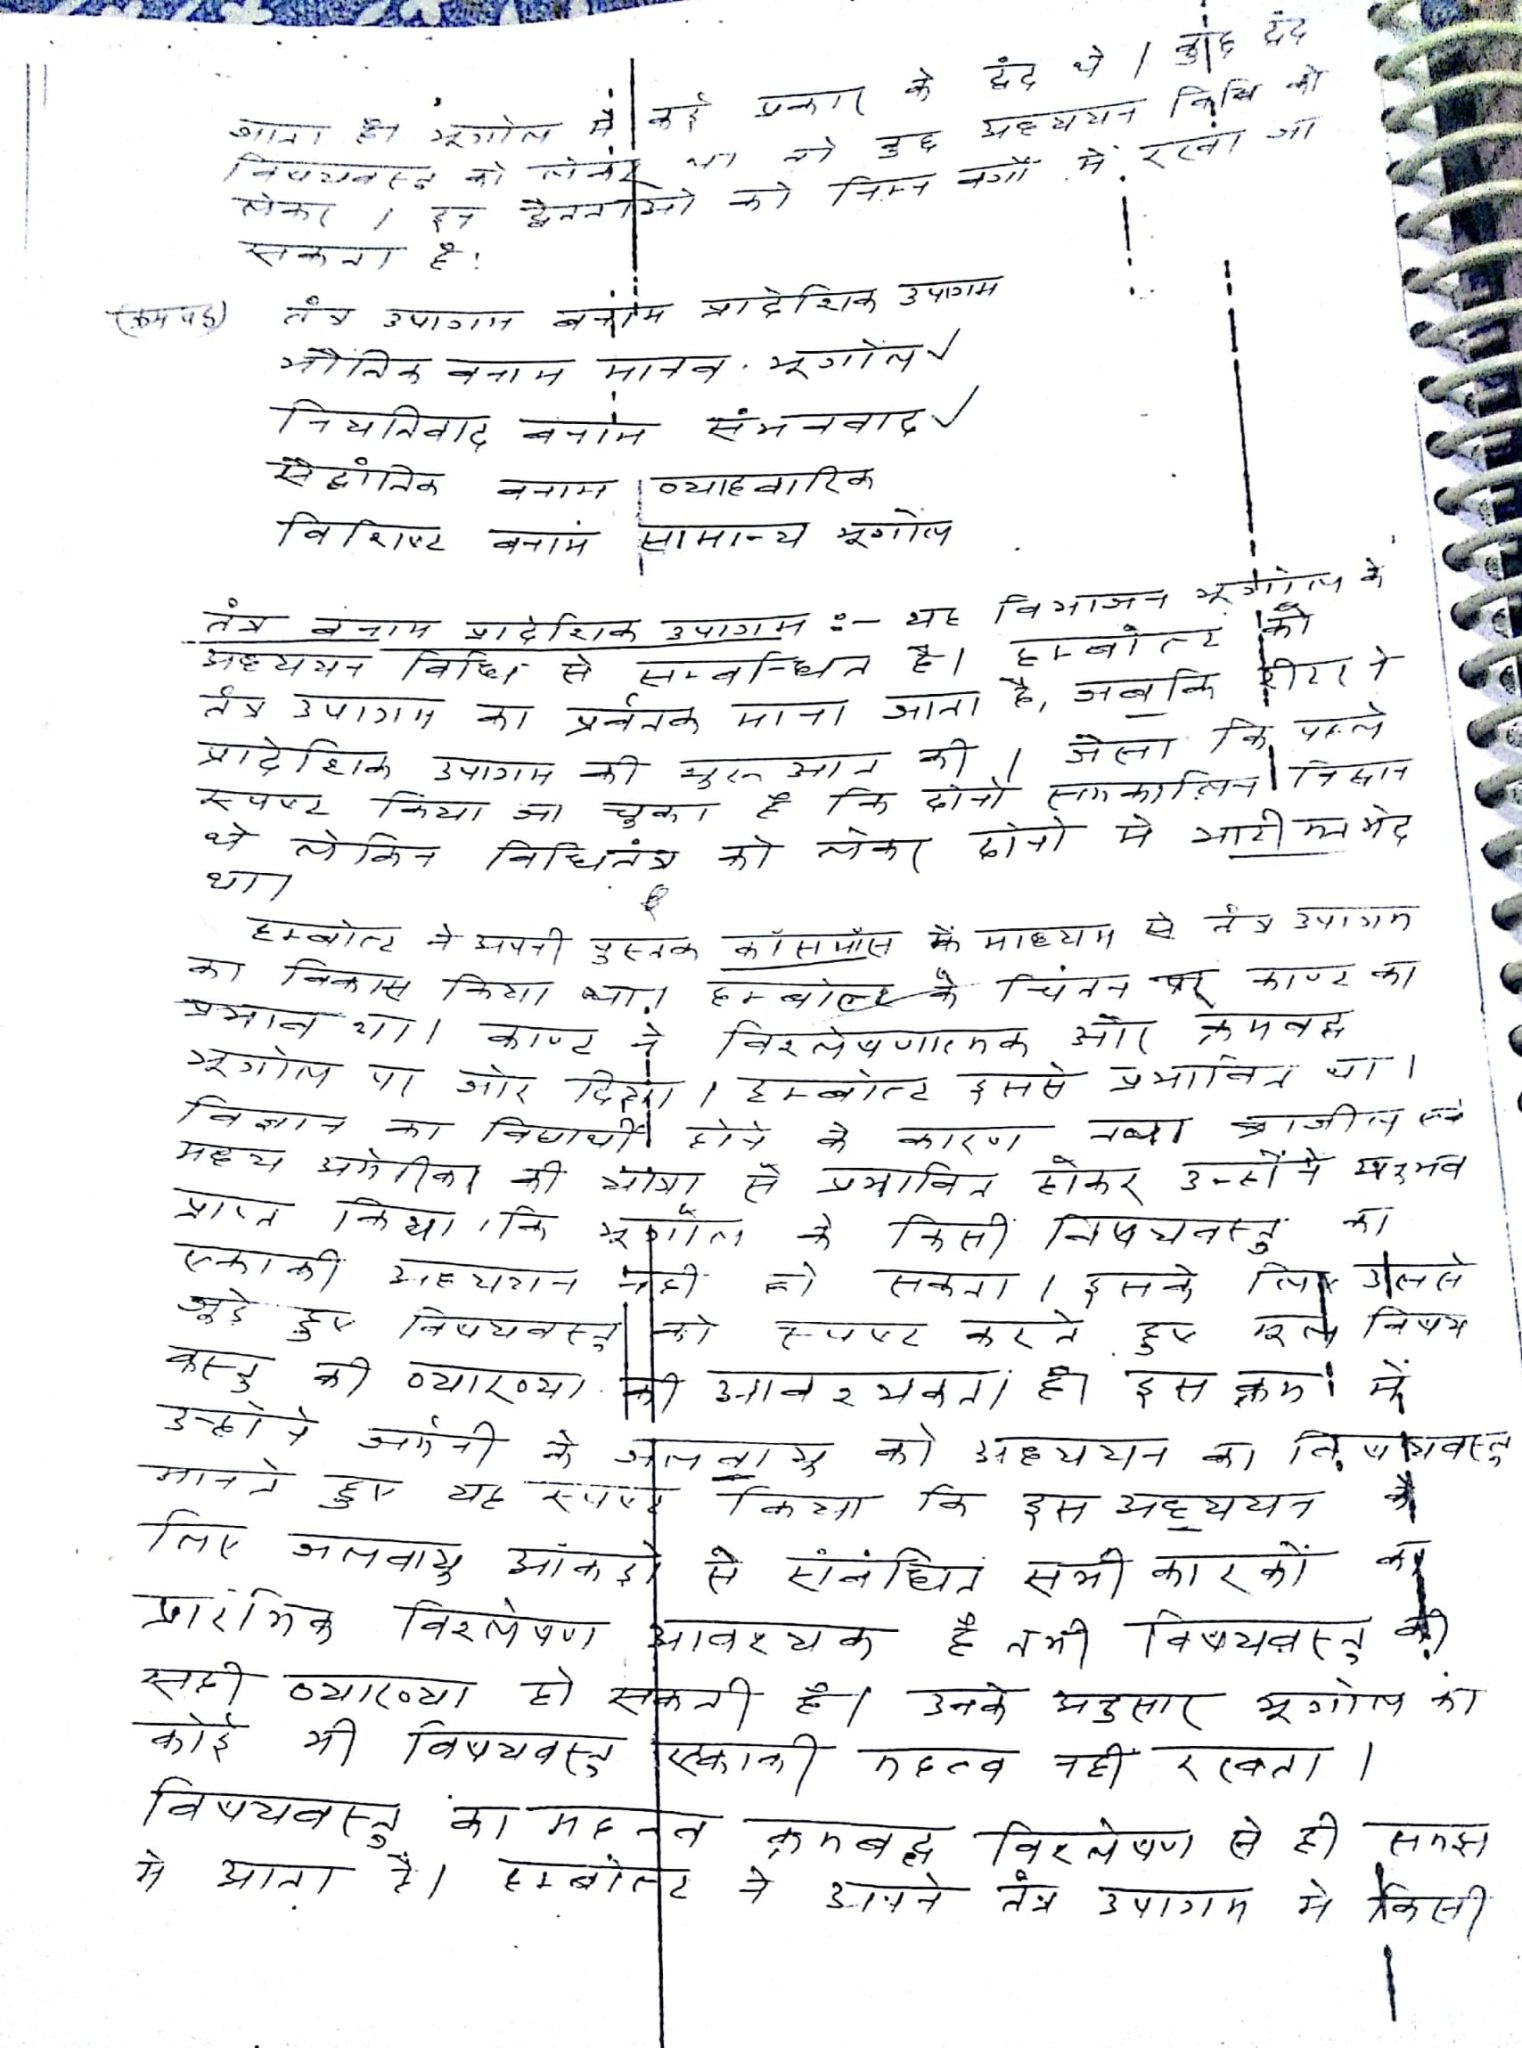 जाता है। भूगोल में कई प्रकार के द्वंद थे । कुछ द्वंद
विषयवस्तु को लेकर था तो कुछ अध्ययन विधि को
लेकर । इन द्वैतताओ को निम्न वर्गों में रखा जा
सकता है:
(क्रमबद्ध) तंत्र उपागम बनाम प्रादेशिक उपागम
भौतिक बनाम मानव भूगोल ✓
नियतिवाद बनाम संभववाद ✓
सैद्धांतिक बनाम व्याहवारिक
विशिष्ट बनाम सामान्य भूगोल
तंत्र बनाम प्रादेशिक उपागम :- यह विभाजन भूगोल के
अध्ययन विधि से सम्बन्धित है। हम्बोल्ट को
तंत्र उपागम का प्रर्वतक माना जाता है, जबकि रीटर ने
प्रादेशिक उपागम की शुरुआत की । जैसा कि पहले
स्पष्ट किया जा चुका है कि दोनो समकालिन विद्वान
थे लेकिन विधितंत्र को लेकर दोनो मे भारी मतभेद
था।
हम्बोल्ट ने अपनी पुस्तक कॉसमॉस के माध्यम से तंत्र उपागम
का विकास किया था। हम्बोल्ट के चिंतन पर काण्ट का
प्रभाव था। काण्ट ने विश्लेषणात्मक और क्रमबद्ध
भूगोल पर जोर दिया। हम्बोल्ट इससे प्रभावित था।
विज्ञान का विद्यार्थी होने के कारण तथा ब्राजील एवं
मध्य अमेरीका की यात्रा से प्रभावित होकर उन्होंने अनुभव
प्राप्त किया कि भूगोल के किसी विषयवस्तु का
एकाकी अध्ययन नही हो सकता । इसके लिए उससे
जूड़े हुए विषयवस्तु को स्पष्ट करते हुए मूल विषय
वस्तु की व्याख्या की आवश्यकता है। इस क्रम में
उन्होने जर्मनी के जलवायु को अध्ययन का विषयवस्तु
मानते हुए यह स्पष्ट किया कि इस अध्ययन के
लिए जलवायु आँकड़ो से संबंधित सभी कारकों का
प्रारंभिक विश्लेषण आवश्यक है तभी विषयवस्तु की
सही व्याख्या हो सकती है। उनके अनुसार भूगोल का
कोई भी विषयवस्तु एकाकी महत्व नही रखता ।
विषयवस्तु का महत्व क्रमबद्ध विश्लेषण से ही समझ
मे आता है। हम्बोल्ट ने अपने तंत्र उपागम मे किसी